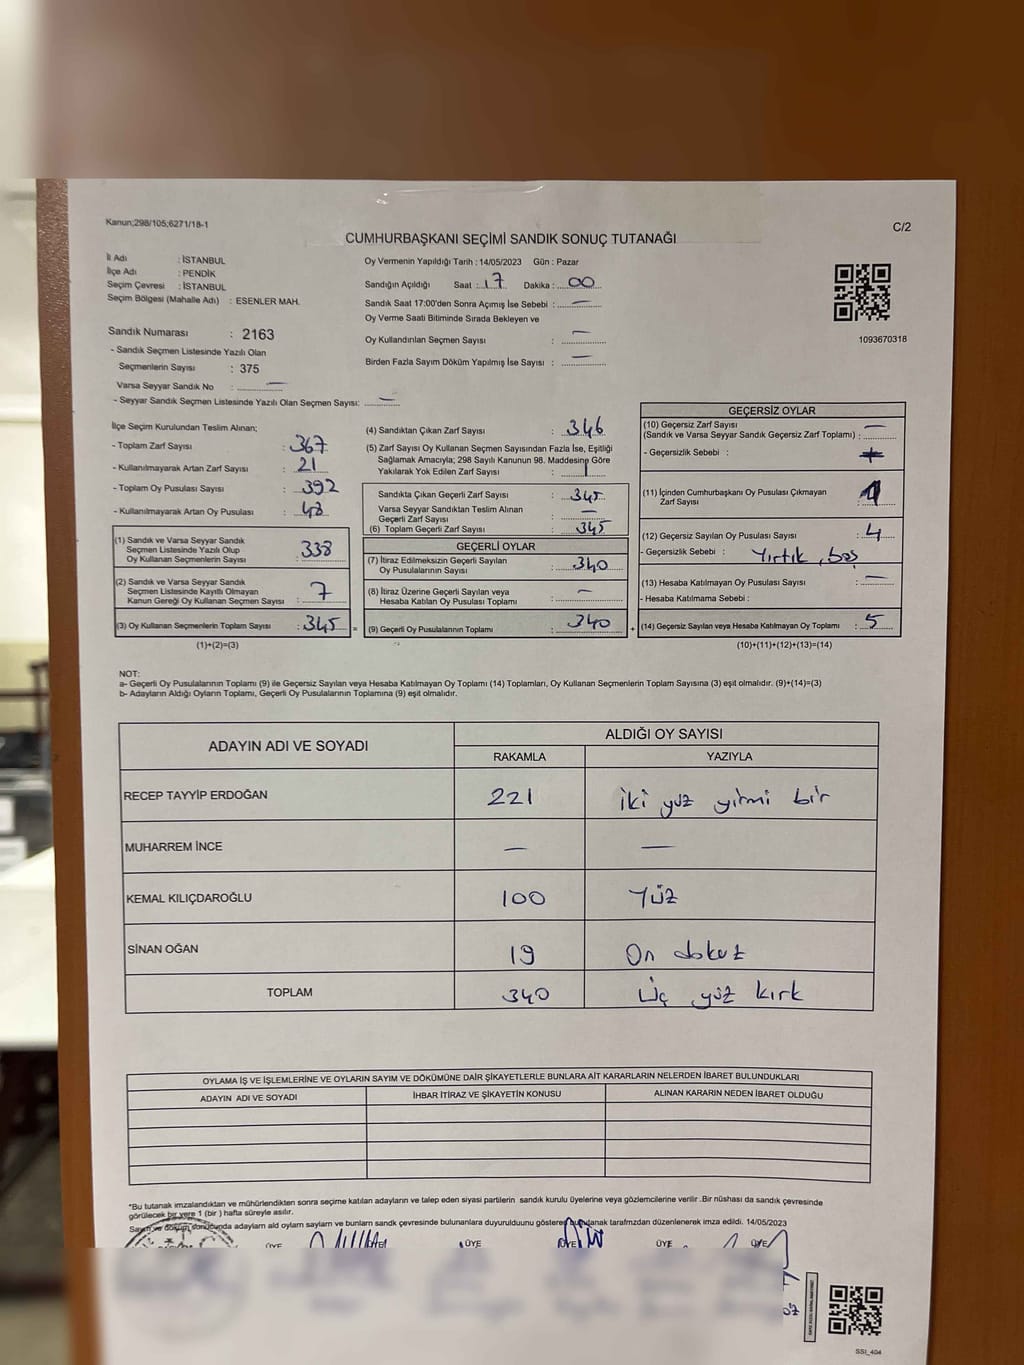 Kanun;298/105;6271/18-1
C/2
CUMHURBAŞKANI SEÇİMİ SANDIK SONUÇ TUTANAĞI
İl Adı : İSTANBUL
İlçe Adı : PENDİK
Seçim Çevresi : İSTANBUL
Seçim Bölgesi (Mahalle Adı) : ESENLER MAH.
Oy Vermenin Yapıldığı Tarih : 14/05/2023 Gün : Pazar
Sandığın Açıldığı Saat : 17 Dakika : 00
Sandık Saat 17:00'den Sonra Açımış İse Sebebi : —
Oy Verme Saati Bitiminde Sırada Bekleyen ve
Oy Kullandırılan Seçmen Sayısı : —
Birden Fazla Sayım Döküm Yapılmış İse Sayısı : —
1093670318
Sandık Numarası : 2163
- Sandık Seçmen Listesinde Yazılı Olan
Seçmenlerin Sayısı : 375
Varsa Seyyar Sandık No : —
- Seyyar Sandık Seçmen Listesinde Yazılı Olan Seçmen Sayısı: —
İlçe Seçim Kurulundan Teslim Alınan;
- Toplam Zarf Sayısı : 367
- Kullanılmayarak Artan Zarf Sayısı : 21
- Toplam Oy Pusulası Sayısı : 392
- Kullanılmayarak Artan Oy Pusulası : 48
(1) Sandık ve Varsa Seyyar Sandık
Seçmen Listesinde Yazılı Olup
Oy Kullanan Seçmenlerin Sayısı : 338
(2) Sandık ve Varsa Seyyar Sandık
Seçmen Listesinde Kayıtlı Olmayan
Kanun Gereği Oy Kullanan Seçmen Sayısı : 7
(3) Oy Kullanan Seçmenlerin Toplam Sayısı : 345 =
(1)+(2)=(3)
(4) Sandıktan Çıkan Zarf Sayısı : 346
(5) Zarf Sayısı Oy Kullanan Seçmen Sayısından Fazla İse, Eşitliği
Sağlamak Amacıyla; 298 Sayılı Kanunun 98. Maddesine Göre
Yakılarak Yok Edilen Zarf Sayısı : 1
Sandıkta Çıkan Geçerli Zarf Sayısı : 345
Varsa Seyyar Sandıktan Teslim Alınan
Geçerli Zarf Sayısı : —
(6) Toplam Geçerli Zarf Sayısı : 345
GEÇERLİ OYLAR
(7) İtiraz Edilmeksizin Geçerli Sayılan
Oy Pusulalarının Sayısı : 340
(8) İtiraz Üzerine Geçerli Sayılan veya
Hesaba Katılan Oy Pusulası Toplamı : —
(9) Geçerli Oy Pusulalarının Toplamı : 340 +
GEÇERSİZ OYLAR
(10) Geçersiz Zarf Sayısı —
(Sandık ve Varsa Seyyar Sandık Geçersiz Zarf Toplamı) :
- Geçersizlik Sebebi :
(11) İçinden Cumhurbaşkanı Oy Pusulası Çıkmayan
Zarf Sayısı : 1
(12) Geçersiz Sayılan Oy Pusulası Sayısı : 4
- Geçersizlik Sebebi : Yırtık, boş
(13) Hesaba Katılmayan Oy Pusulası Sayısı : —
- Hesaba Katılmama Sebebi :
(14) Geçersiz Sayılan veya Hesaba Katılmayan Oy Toplamı : 5
(10)+(11)+(12)+(13)=(14)
NOT:
a- Geçerli Oy Pusulalarının Toplamı (9) ile Geçersiz Sayılan veya Hesaba Katılmayan Oy Toplamı (14) Toplamları, Oy Kullanan Seçmenlerin Toplam Sayısına (3) eşit olmalıdır. (9)+(14)=(3)
b- Adayların Aldığı Oyların Toplamı, Geçerli Oy Pusulalarının Toplamına (9) eşit olmalıdır.
ADAYIN ADI VE SOYADI ALDIĞI OY SAYISI
RAKAMLA YAZIYLA
RECEP TAYYİP ERDOĞAN 221 iki yüz yirmi bir
MUHARREM İNCE — —
KEMAL KILIÇDAROĞLU 100 Yüz
SİNAN OĞAN 19 On dokuz
TOPLAM 340 Üç yüz kırk
OYLAMA İŞ VE İŞLEMLERİNE VE OYLARIN SAYIM VE DÖKÜMÜNE DAİR ŞİKAYETLERLE BUNLARA AİT KARARLARIN NELERDEN İBARET BULUNDUKLARI
ADAYIN ADI VE SOYADI İHBAR İTİRAZ VE ŞİKAYETİN KONUSU ALINAN KARARIN NEDEN İBARET OLDUĞU
*Bu tutanak imzalandıktan ve mühürlendikten sonra seçime katılan adayların ve talep eden siyasi partilerin sandık kurulu üyelerine ve/veya gözlemcilerine verilir .Bir nüshası da sandık çevresinde
görülecek bir yere 1 (bir ) hafta süreyle asılır.
Sayım ve döküm sonucunda adayların ald oyların sayların ve bunların sandk çevresinde bulunanlara duyurulduunu gösteren tutanak tarafmzdan düzenlenerek imza edildi. 14/05/2023
ÜYE ÜYE ÜYE ÜYE ÜYE
SSI_404